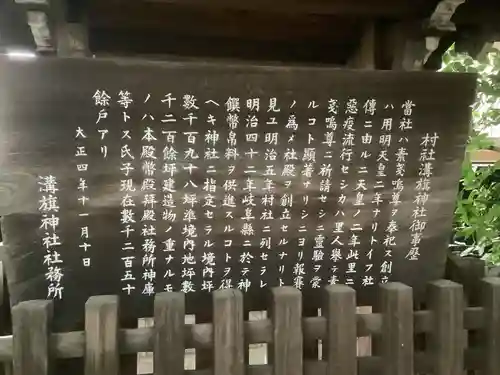 村社溝旗神社御事歴
當社ハ素戔鳴尊ヲ奉祀ス創立
ハ用明天皇二年ナリトイフ社
傳ニ由ルニ天皇ノ二年此里ニ
惡疫流行セシカハ里人擧テ素
戔鳴尊ニ祈請セシニ靈驗ヲ蒙
ルコト顯著ナリシニヨリ報賽
ノ為メ社殿ヲ創立セルナリト
見ユ明治五年村社ニ列セラレ
明治四十二年岐阜縣ニ於テ神
饌幣帛料ヲ供進スルコトヲ得
ヘキ神社ニ指定セラル境内坪
數千九十八坪準境内地坪數
千二百餘坪建造物ノ重ナルモ
ノハ本殿幣殿拜殿社務所神庫
等トス氏子現在數千二百五十
餘戸アリ
大正四年十一月十日
溝旗神社社務所